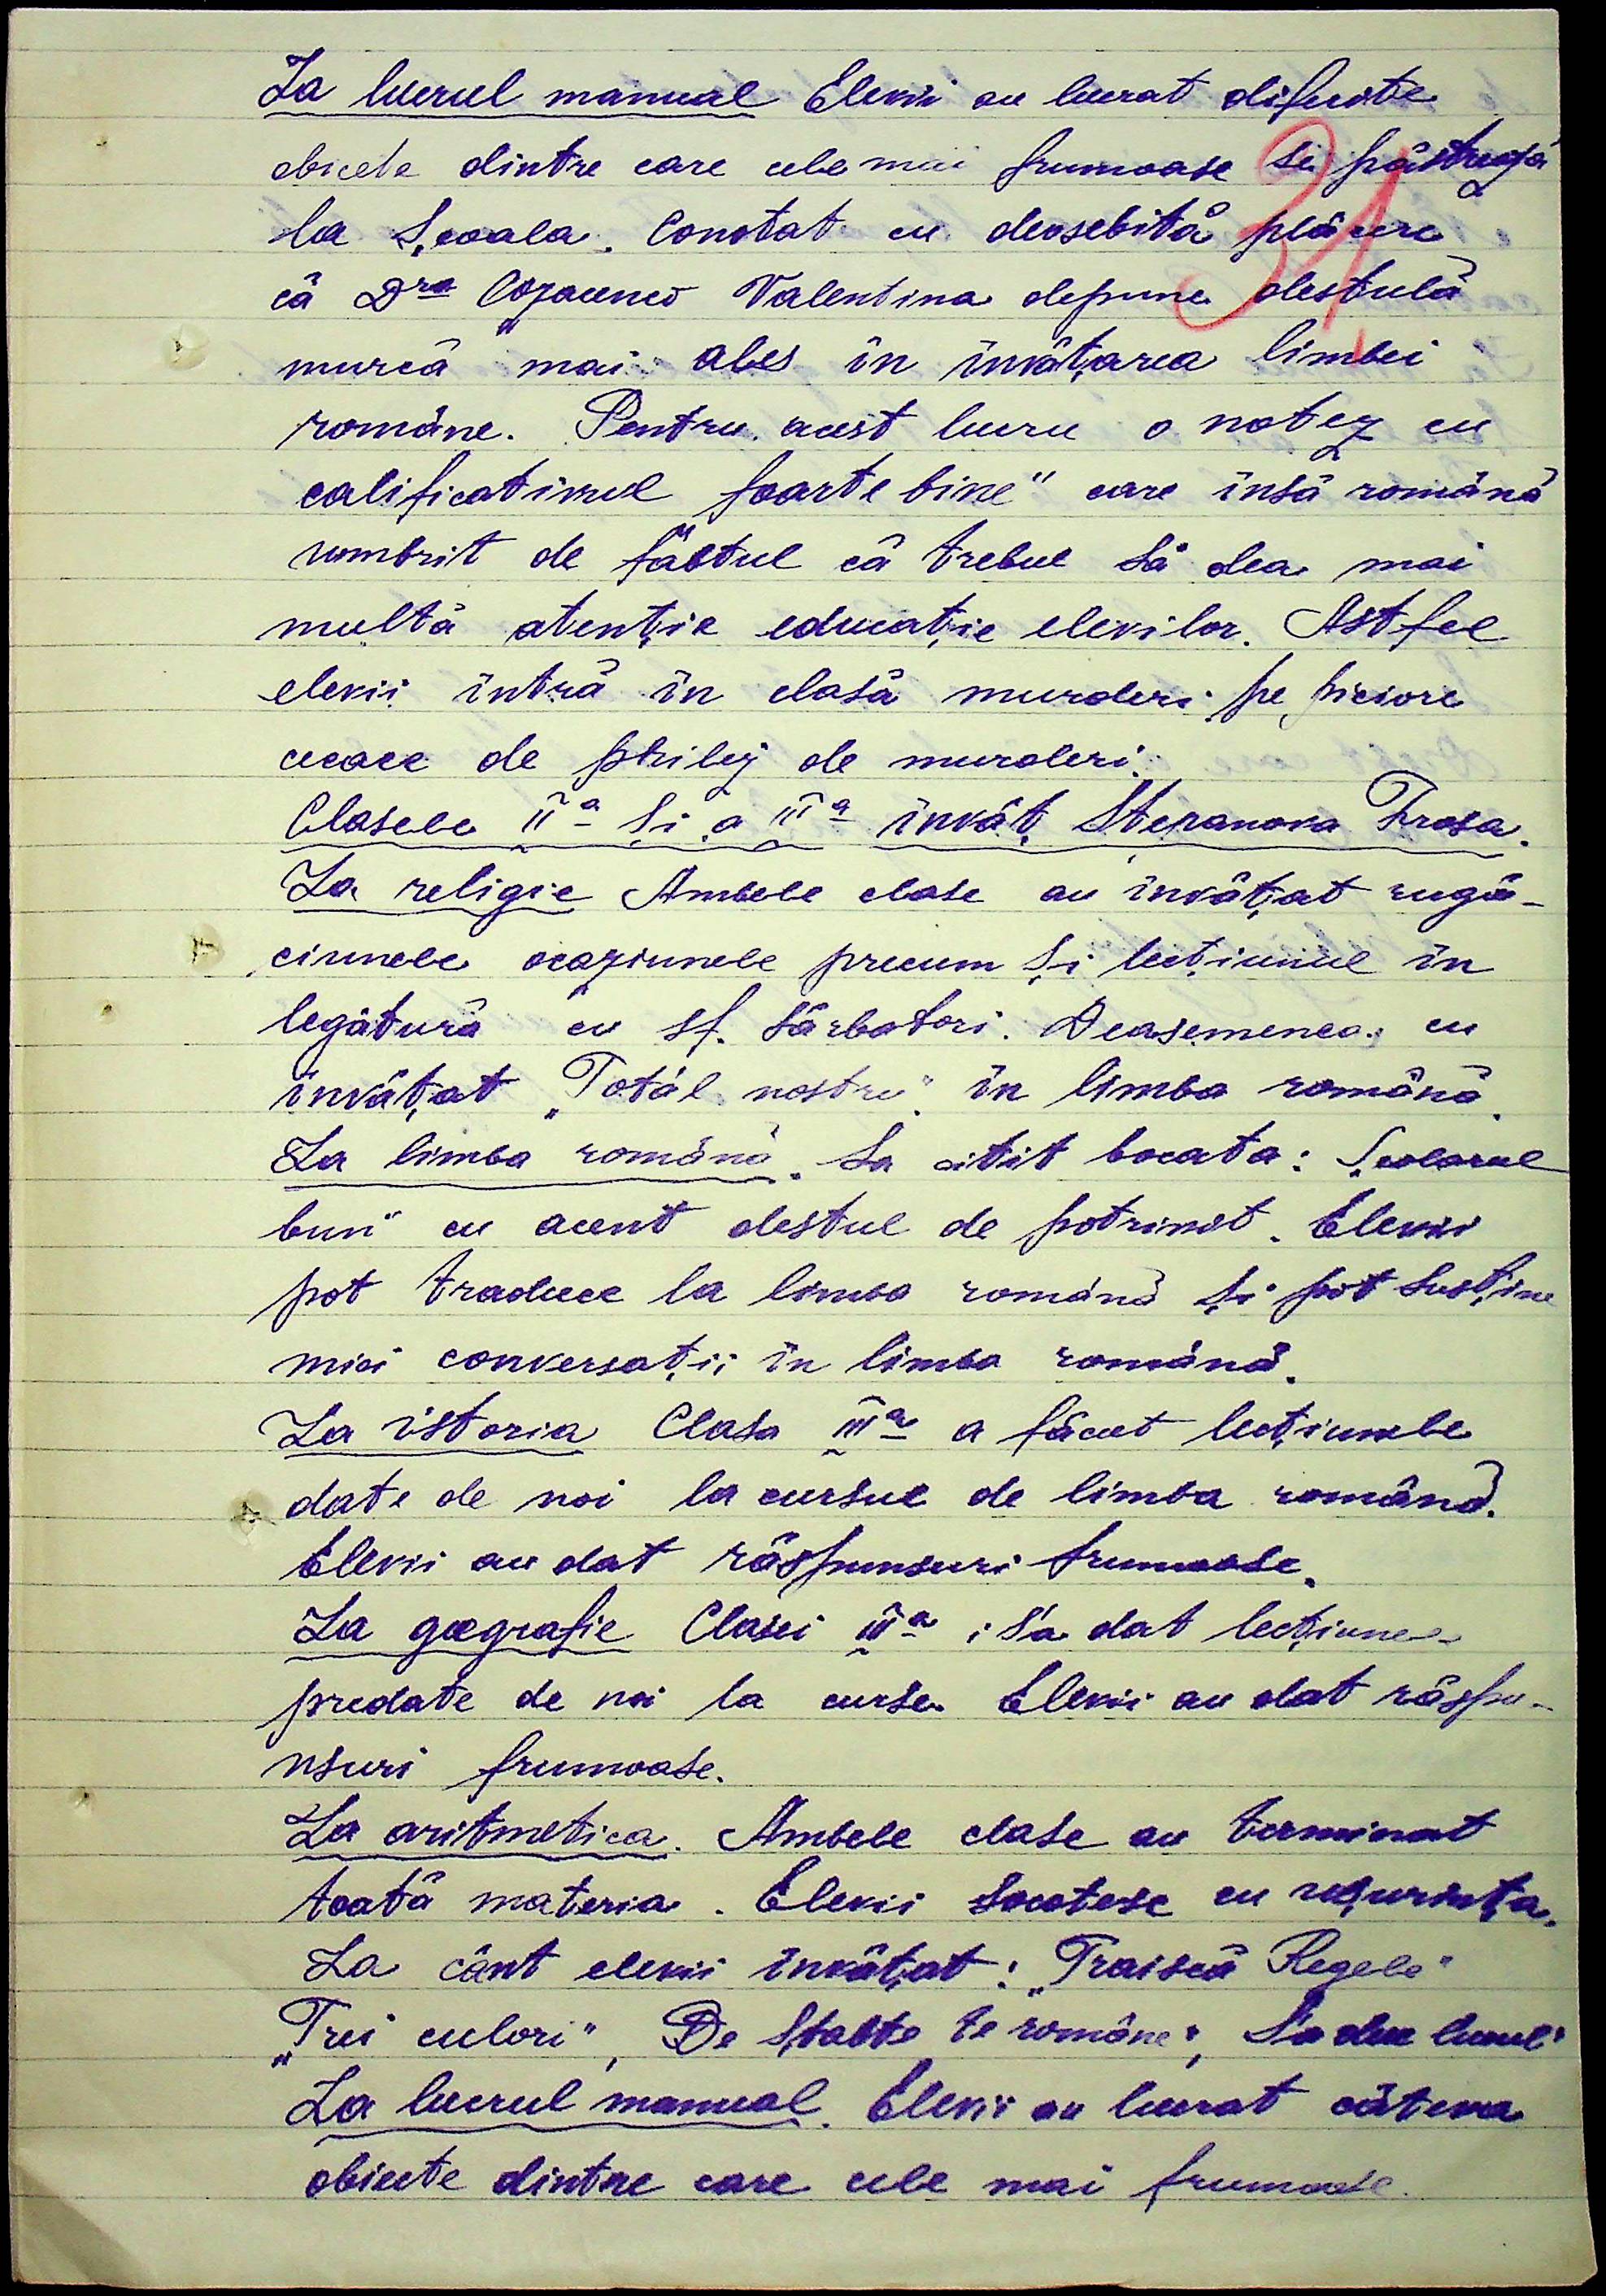 La lucrul manual Elevii au lucrat diferite
obicete dintre care cele mai frumoase se păstrează
la Școala. Constat cu deosebită plăcere
că Dra Cozacenco Valentina depune destulă
murcă mai ales în învățarea limbei
române. Pentru acest lucru o notez cu
calificativul „foarte bine" care însă română
umbrit de făbtul că trebue să dea mai
multă atenție educație elevilor. Astfel
elevii intră în clasă murderi pe piciore
ceeace de prilej de murderi.
Clasele IIa și a IIIa învăț Stepanova Frosa.
La religie Ambele clase au învățat rugă-
ciunele ocaziunele precum și lecțiunile în
legătură cu sf. sărbatori. Deasemenea au
învățat „Totăl nostru" în limba română.
La limba română. Sa citit bucata: Școlarul
bun" cu acent destul de potrivit. Elevii
pot traduce la limba română și pot susține
mici conversații în limba română.
La istoria Clasa IIIa a făcut lecțiunele
date de noi la cursul de limba română.
Elevii au dat răspunsuri frumoase.
La geografie Clasei IIIa i s'a dat lecțiune
predate de noi la curse. Elevii au dat răspu-
nsuri frumoase.
La aritmetica. Ambele clase au terminat
toată materia. Elevii socotesc cu ușurința.
La cânt elevii învățat: „Traiscă Regele"
„Trei culori", De Ștabte te române", S'a dus
La lucrul manual. Elevii au lucrat câteva
obiecte dintre care cele mai frumoase.
31